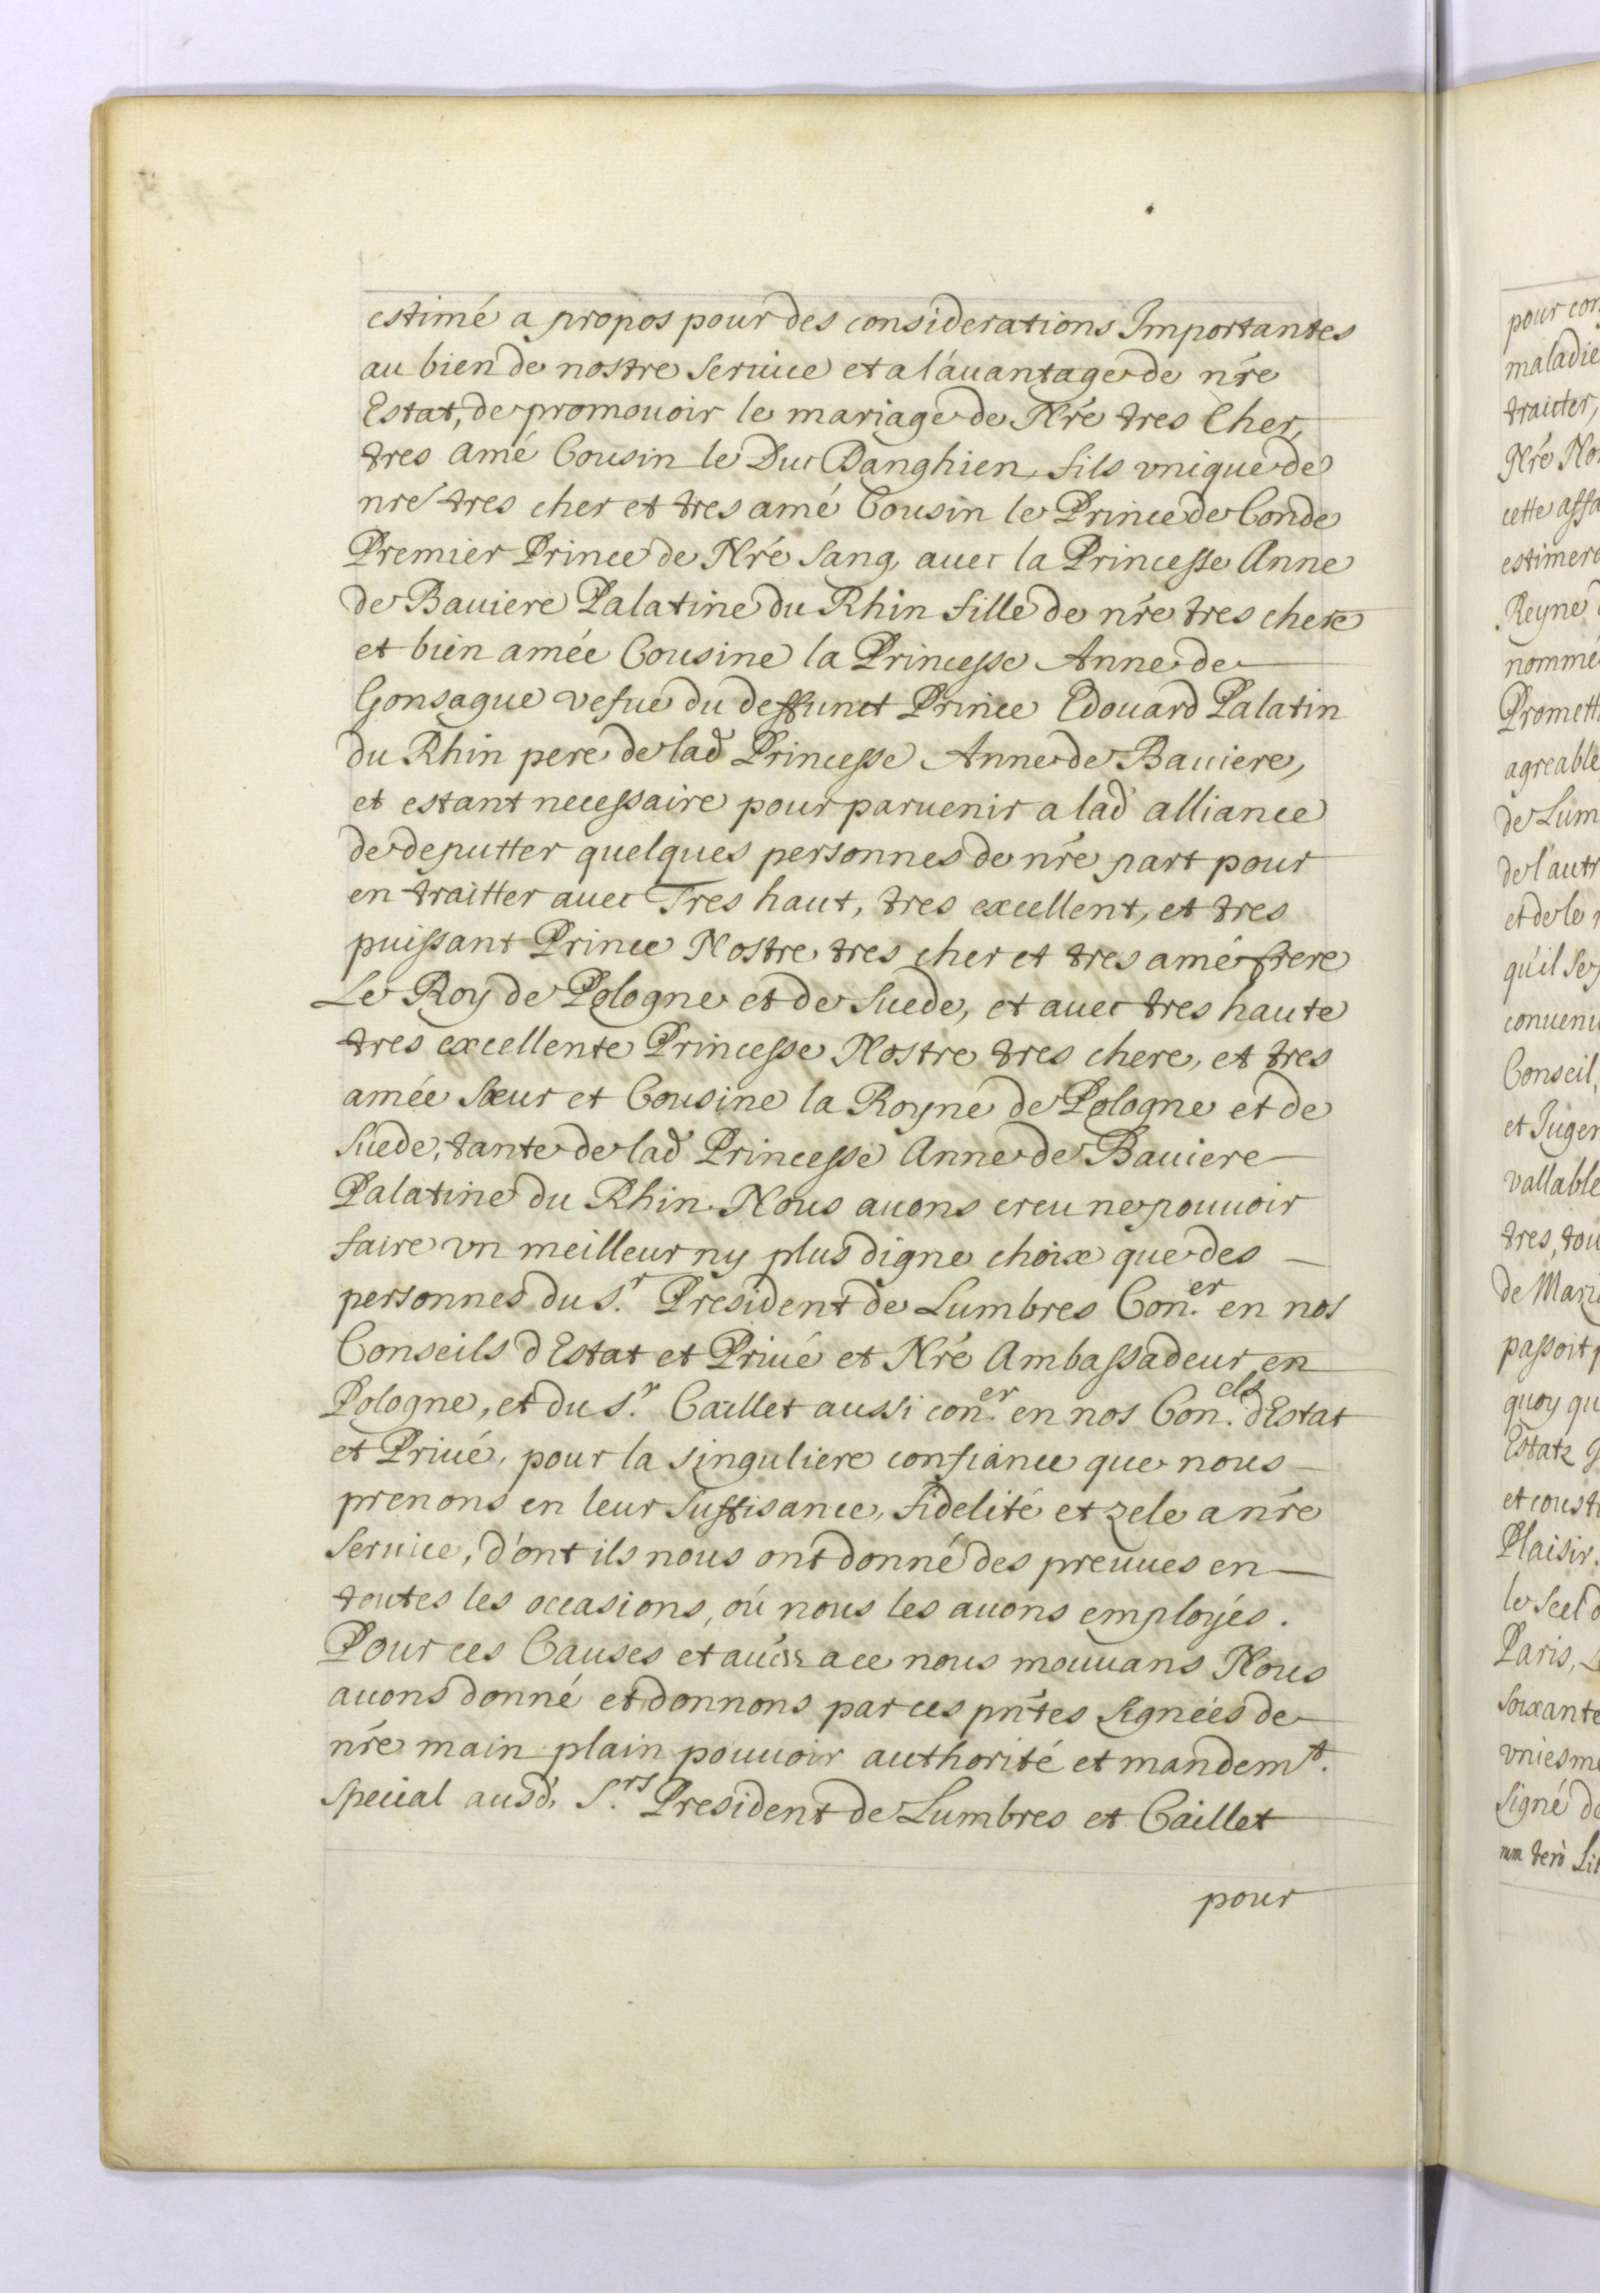 estimé a propos pour des considerations Importantes
au bien de nostre seruice et a l'auantage de nre
Estat, de promouoir le mariage de Nre tres Cher,
tres amé Cousin le Duc Danghien, fils vnique de
nre tres cher et tres amé Cousin le Prince de Conde
Premier Prince de Nre sang, auec la Princesse Anne
de Bauiere Palatine du Rhin fille de nre tres chere
et bien amée Cousine la Princesse Anne de
Gonsague vefue du deffunct Prince Edouard Palatin
du Rhin pere de lad Princesse Anne de Bauiere,
et estant necessaire pour paruenir a lad alliance
de deputter quelques personnes de nre part pour
en traitter auec Tres haut, tres excellent, et tres
puissant Prince Nostre tres cher et tres amé frere
Le Roy de Pologne et de Suede, et auec tres haute
tres excellente Princesse Nostre tres chere, et tres
amée sœur et Cousine la Royne de Pologne et de
Suede, tante de lad Princesse Anne de Bauiere
Palatine du Rhin. Nous auons creu ne pouuoir
faire vn meilleur ny plus digne choix que des
personnes du S.r President de Lumbres Con.er en nos
Conseils d'Estat et Priué et Nre Ambassadeur en
Pologne, et du S.r Caillet aussi con.er en nos Con.cls d'Estat
et Priué, pour la singuliere confiance que nous
prenons en leur suffisance, fidelité et zele a nre
seruice, d'ont ils nous ont donné des preuues en
toutes les occasions, ou nous les auons employés.
Pour ces Causes et autres a ce nous mouuans Nous
auons donné et donnons par ces pntes signées de
nre main plain pouuoir authorité et mandem.t
special ausd. S.rs President de Lumbres et Caillet
pour
pour con
maladie
traitter,
Nre No
cette affa
estimero
Reyne
nommé
Promett
agreable
de Lum
de l'autr
et de le
qu'il se
conuenu
Conseil,
et Juger
vallable
tres, tou
de Mari
passoit p
quoy qu
Estatz
et coust
Plaisir.
le Scel d
Paris,
soixante
vniesme
Signé